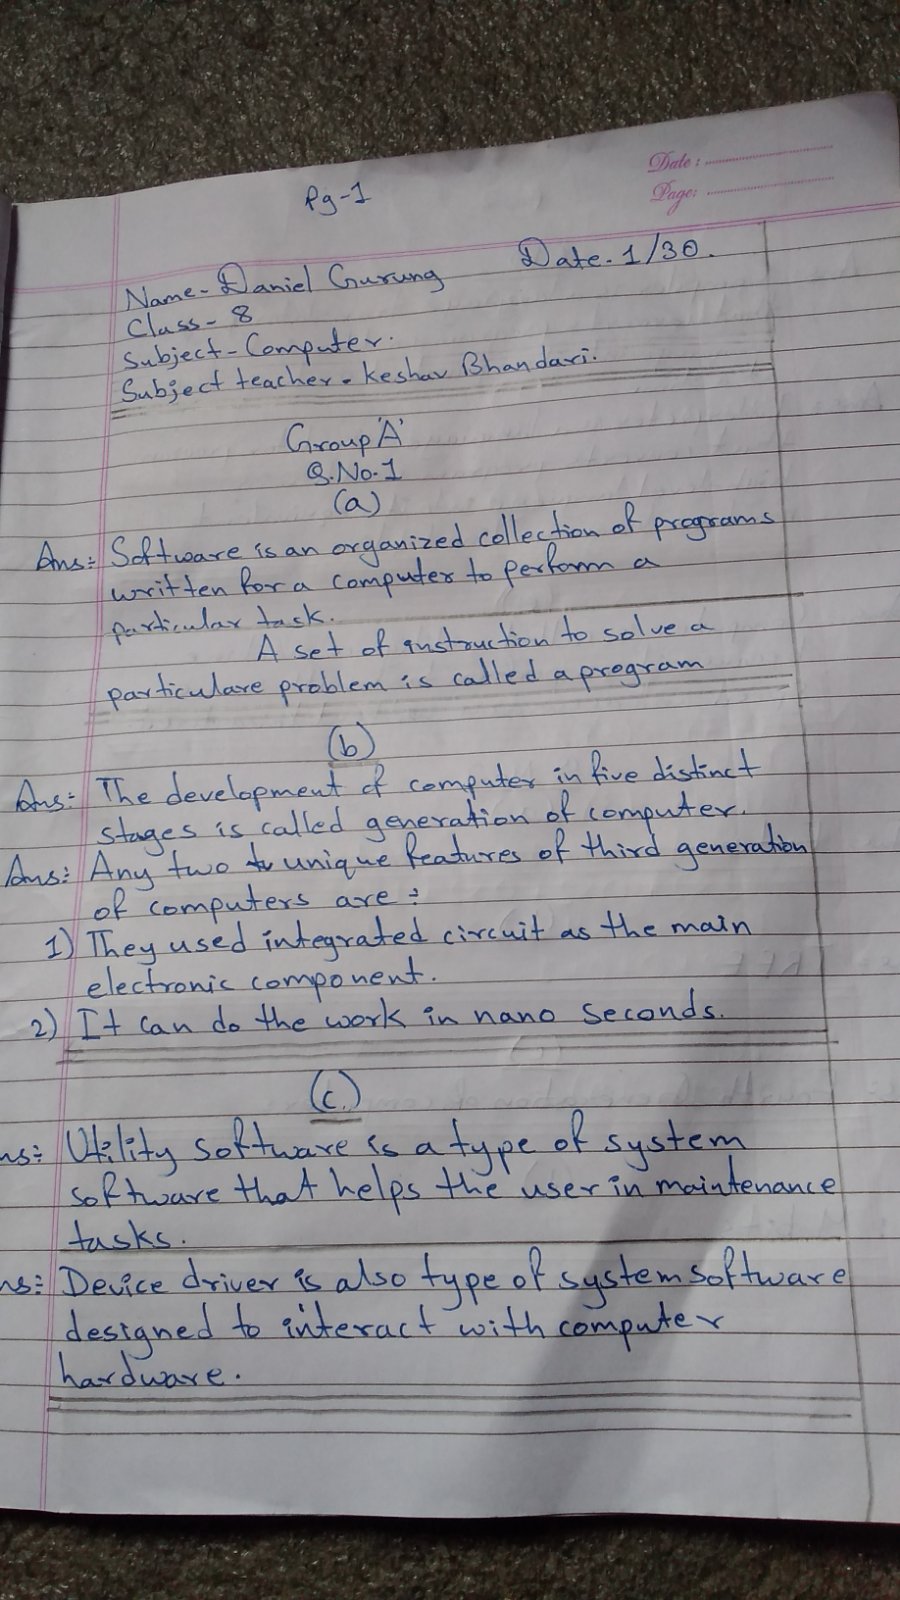 Date:
Page:
Pg-1
Name- Daniel Gurung Date-1/30.
Class- 8
Subject- Computer.
Subject teacher- Keshav Bhandari.
Group 'A'
Q.No.1
(a)
Ans:- Software is an organized collection of programs
written for a computer to perform a
particular task.
A set of instruction to solve a
particulare problem is called a program
(b)
Ans:- The development of computer in five distinct
stages is called generation of computer.
Ans:- Any two unique features of third generation
of computers are :-
1) They used integrated circuit as the main
electronic component.
2) It can do the work in nano seconds.
(c.)
ns:- Utility software is a type of system
software that helps the user in maintenance
tasks.
ns:- Device driver is also type of system software
designed to interact with computer
hardware.